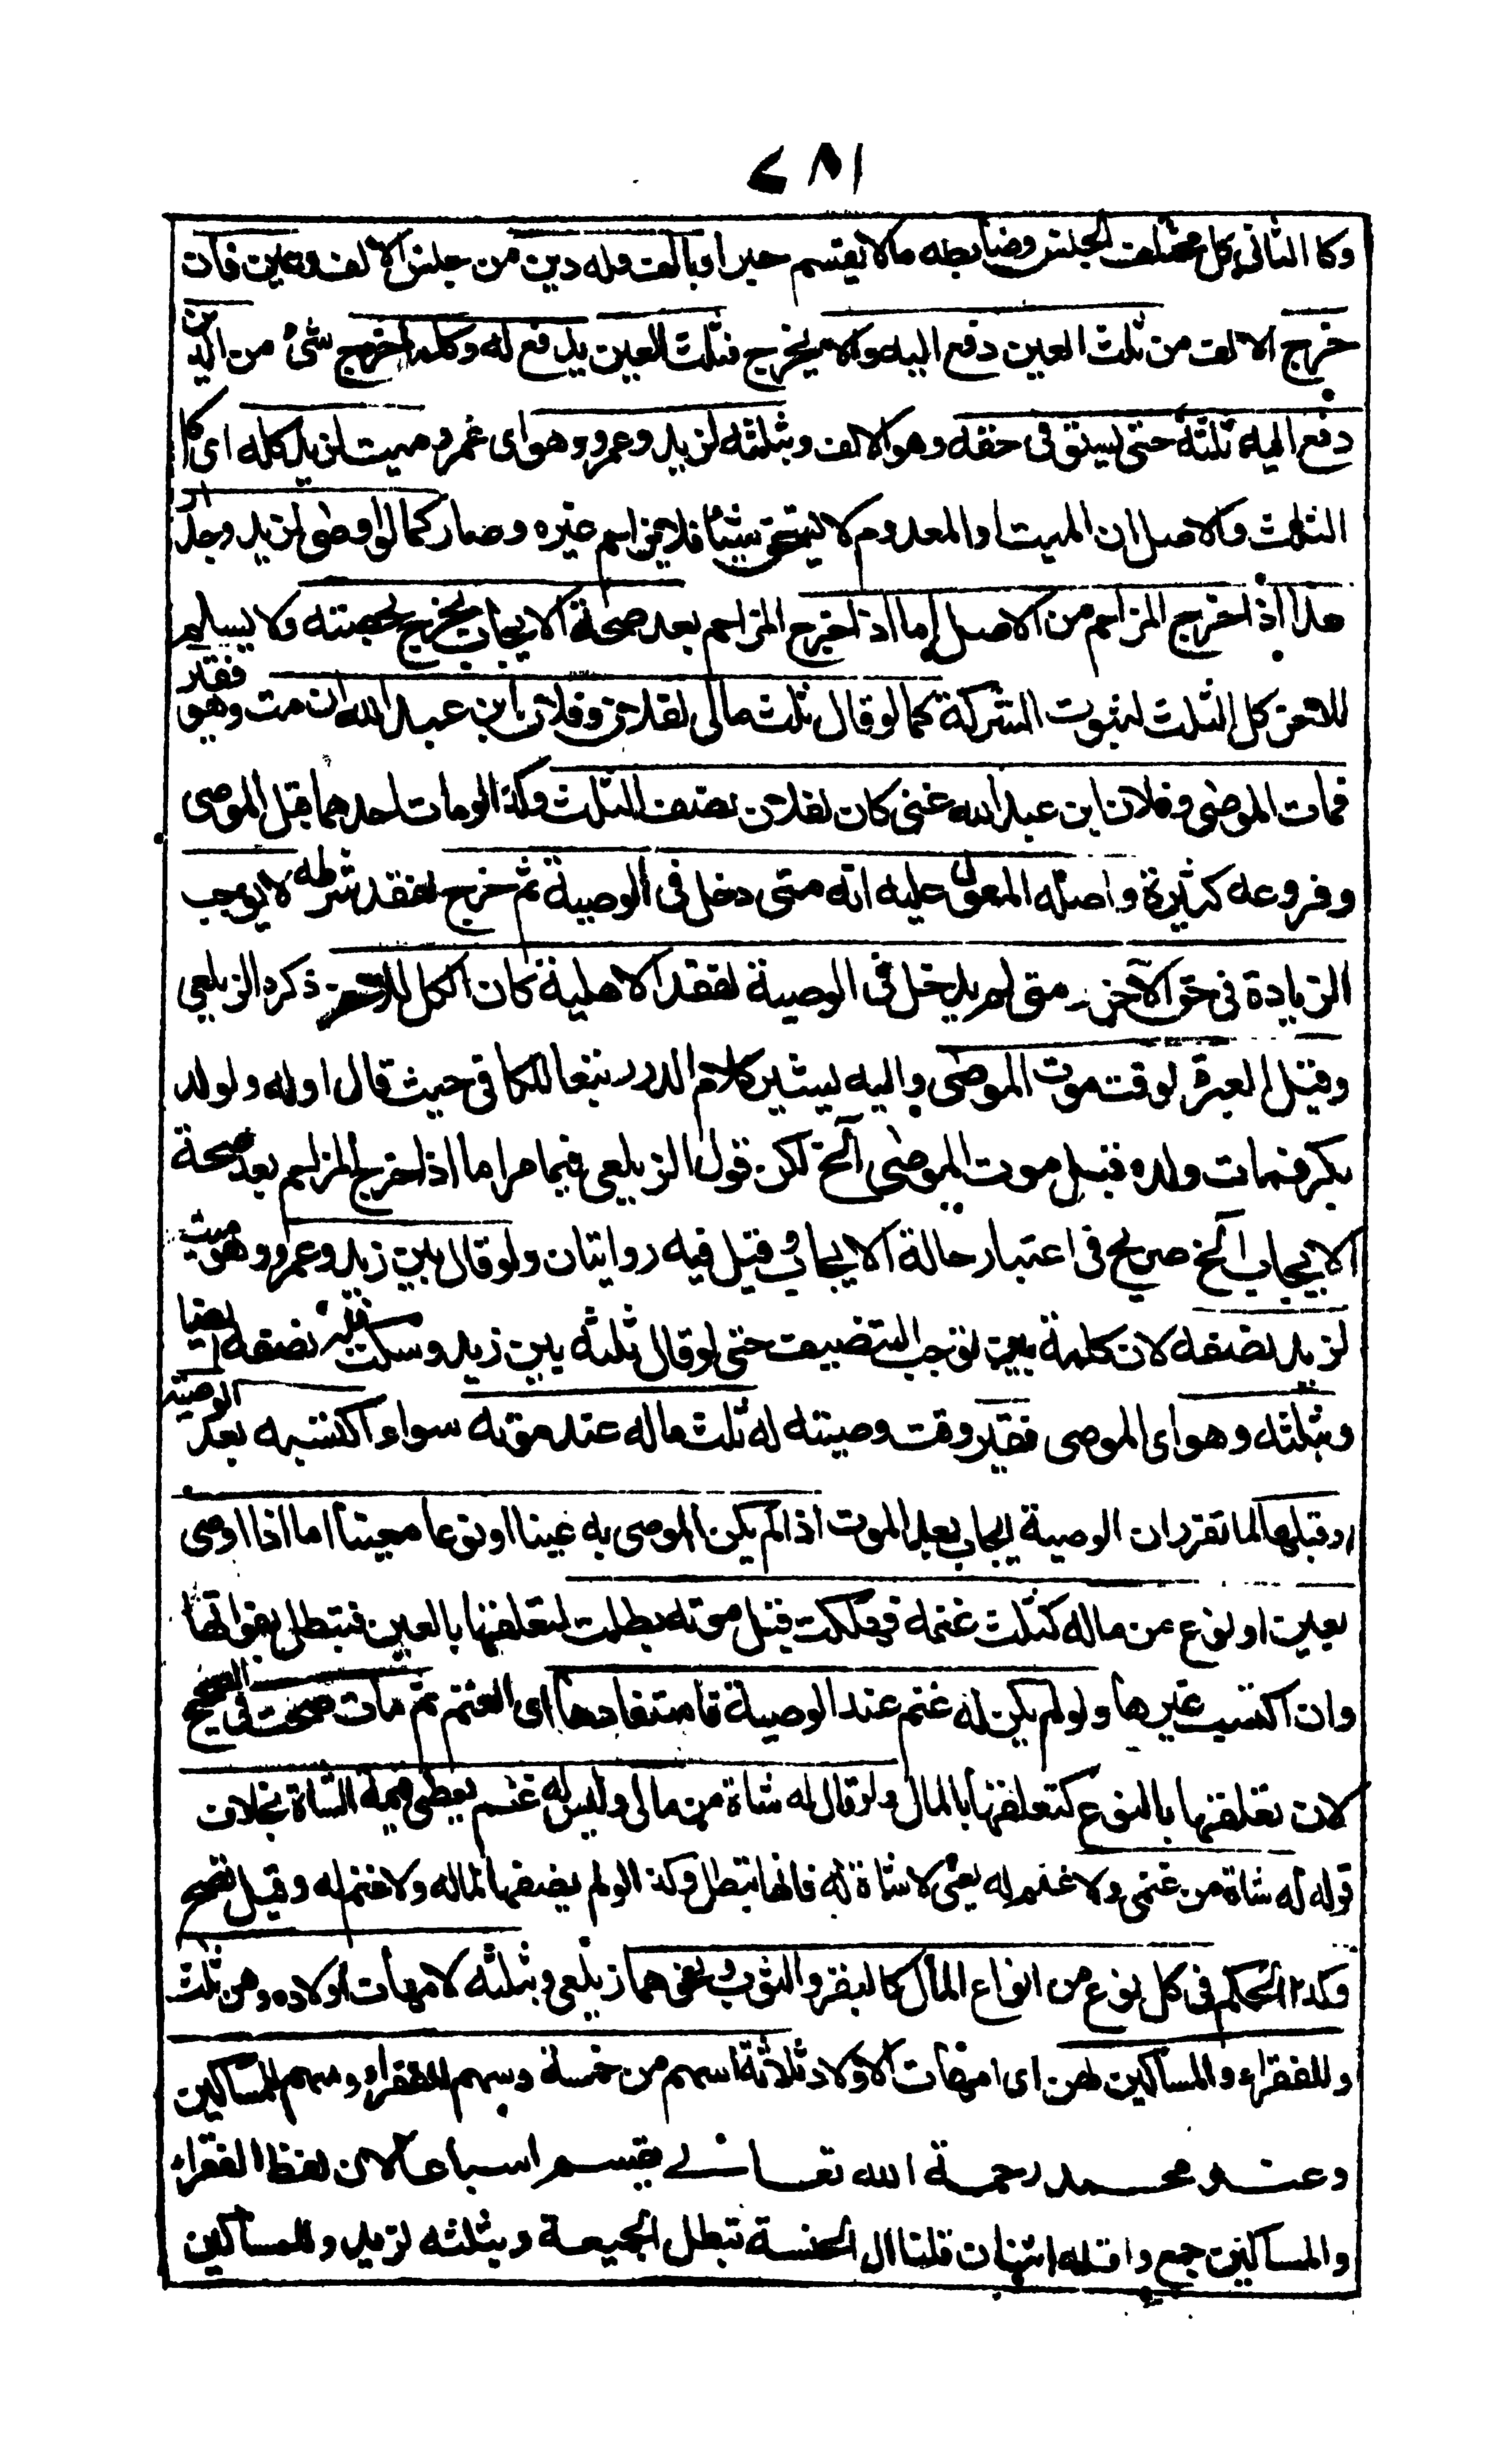 ٧٨١
وكا الثاني كل مختلف الجنس وضابطه ما لا يقسم جبرا وبالف وله دين من جنس الالف وعين فان
خرج الالف من ثلث العين دفع اليه والا يخرج فثلث العين يدفع له وكلما خرج شئ من الدين
دفع اليه ثلثه حتى يستوفى حقه وهو الالف وبثلثه لزيد وعمرو وهو اى عمرو ميت لزيد كله اى كل
الثلث والاصل ان الميت او المعدوم لا يستحق شيئا فلا يزاحم غيره وصار كما لو اوصى لزيد وجدار
هذا اذا خرج المزاحم من الاصل اما اذا خرج المزاحم بعد صحة الايجاب يخرج بحصته ولا يسلم
للاخر كل الثلث لثبوت الشركة كما لو قال ثلث مالى لفلان وفلان ابن عبد الله ان مت وهو فقير
فمات الموصى وفلان ابن عبد الله غنى كان لفلان نصف الثلث وكذا لو مات احدهما قبل الموصى
وفروعه كثيرة واصله المعول عليه انه متى دخل فى الوصية ثم خرج لفقد شرطه لا يوجب
الزيادة فى حق الآخر ومتى لم يدخل فى الوصية لفقد الاهلية كان الكل للاخر ذكره الزيلعى
وقيل العبرة لوقت موت الموصى واليه يشير كلام الدرر تبعا للكافى حيث قال او له ولولد
بكر فمات ولده قبل موت الموصى الخ لكن قول الزيلعى فيما مر اما اذا خرج المزاحم بعد صحة
الايجاب الخ صريح فى اعتبار حالة الايجاب وقيل فيه روايتان ولو قال بين زيد وعمرو وهو ميت
لزيد نصفه لان كلمة بين توجب التنصيف حتى لو قال ثلثه بين زيد وسكت فله نصفه ايضا
وبثلثه وهو اى الموصى فقير وقت وصيته له ثلث ماله عند موته سواء اكتسبه بعد الوصية
او قبلها لما تقرر ان الوصية ايجاب بعد الموت اذا لم يكن الموصى به عينا او نوعا معينا اما اذا اوصى
بعين او نوع من ماله كثلث غنمه فهلكت قبل موته بطلت لتعلقها بالعين فتبطل بفواتها
وان اكتسب غيرها ولو لم يكن له غنم عند الوصية فاستفادها اى الغنم ثم مات صحت فى الصحيح
لان تعلقها بالنوع كتعلقها بالمال ولو قال له شاة من مالى وليس له غنم يعطى قيمة الشاة بخلاف
قوله له شاة من غنمى ولا غنم له يعنى لا شاة له فانها تبطل وكذا لو لم يضفها لماله ولا غنم له وقيل تصح
وكذا الحكم فى كل نوع من انواع المال كالبقر والثوب ونحوهما زيلعى وبثلثه لامهات اولاده وهن ثلث
وللفقراء والمساكين لهن اى امهات الاولاد ثلاثة اسهم من خمسة وسهم للفقراء وسهم للمساكين
وعند محمد رحمة الله تعالى يقسم اسباعا لان لفظ الفقراء
والمساكين جمع واقله اثنان قلنا ال الجنسية تبطل الجمعية وبثلثه لزيد وللمساكين